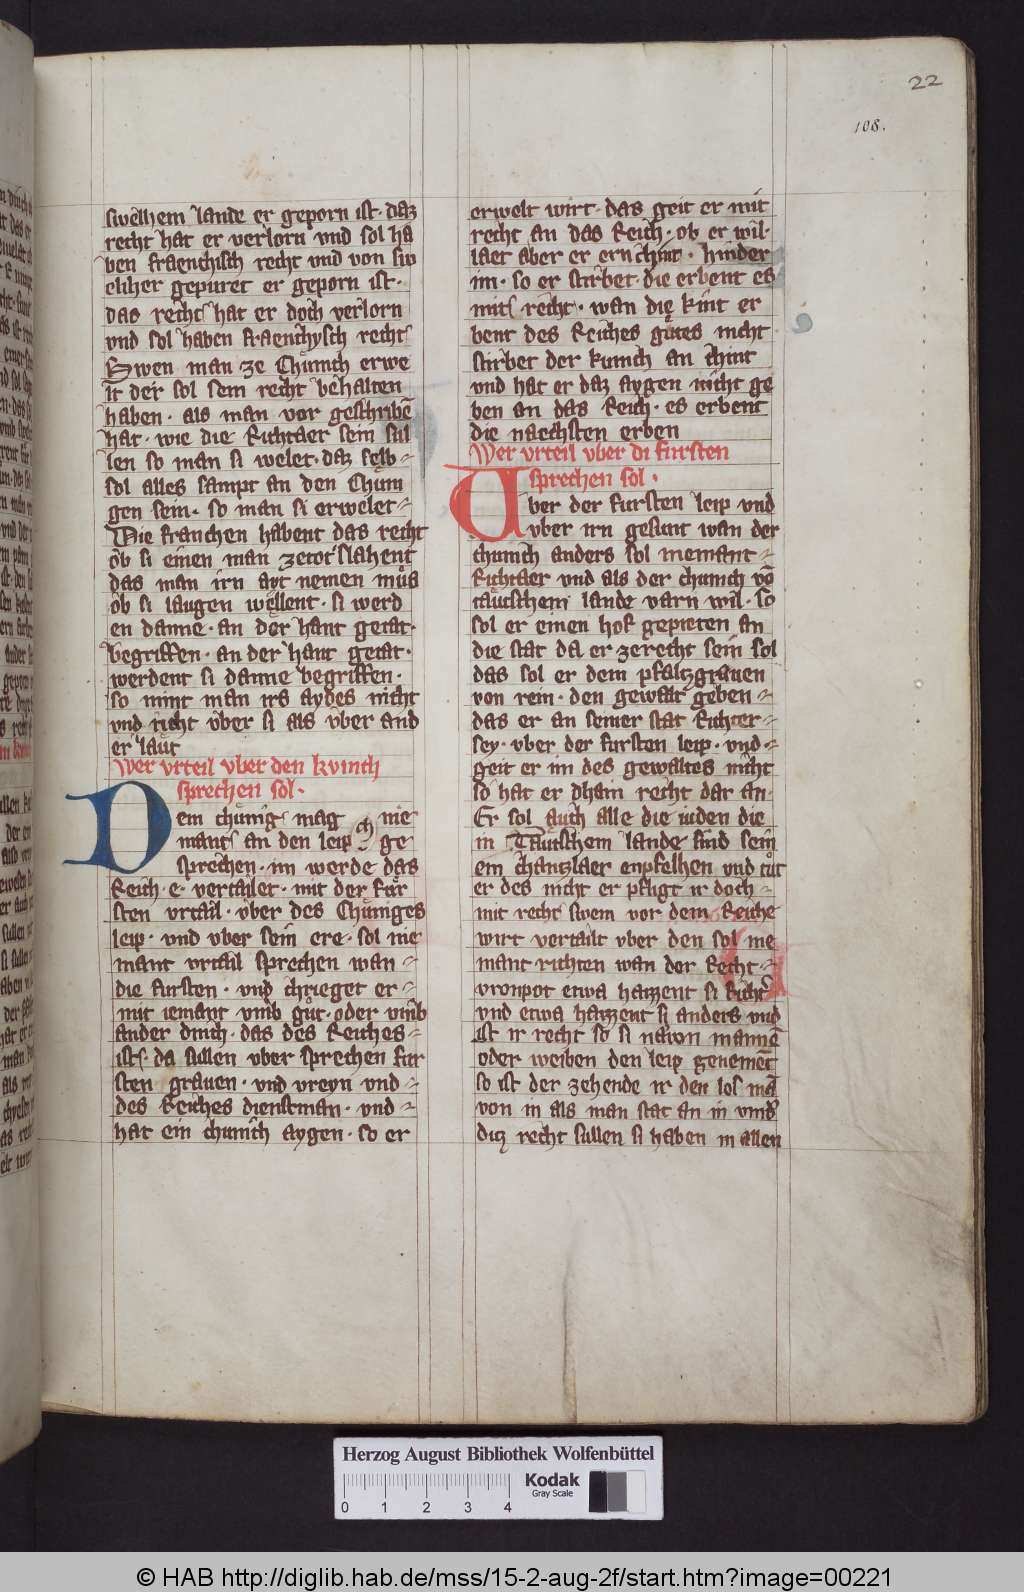 22
108.
swelhem lande er geporn ist· daz
recht hat er verlorn vnd sol ha
ben fraenchisch recht vnd von sw
elher gepuret er geporn ist·
das recht hat er doch verlorn
vnd sol haben fraenchysch recht
Swen man ze Chunich erwe
lt der sol sein recht behalten
haben· als man vor geschribē
hat· wie die Richtaer sein sul
len so man si welet· daz selb-
sol alles sampt an den Chuni
gen sein· so man si erwelet-
Die franchen habent das recht
ob si einen man zetot slahent
das man irn ayt nemen muͦs
ob si laugen wellent· si werd
en danne· an der hant getat·
begriffen· an der hant getat·
werdent si danne begriffen·
so nimt man irs aydes nicht
vnd richt vͤber si als vͤber and
er laͤut
Wer vrteil vber den kvnich
sprechen sol·
Dem chunig mag nie
mant an den leip ge
sprechen· im werde das
Reich· e· vertailet· mit der fur
sten vrtail· vͤber des Chuniges
leip· vnd vber sein ere· sol nie
mant vrtail sprechen wan-
die fursten· vnd chrieget er-
mit iemant vmb guͦt· oder vmb
ander dinch· das des Reiches-
ist· da sullen vber sprechen fur
sten grauen· vnd vreyn vnd-
des Reiches dienstman· vnd-
hat ein chunich aygen· so er
erwelt wirt· das geit er mit
recht an das Reich· ob er wil·
laet aber er ern chint· hinder
im· so er stirbet· die erbent es
mit recht· wan die kint er
bent des Reiches guͦtes nicht
stirbet der kunich an chint
vnd hat er daz aygen nicht ge
ben an das Reich· es erbent
die naechsten erben
Wer vrteil vber di fursten
sprechen sol·
Vber der fursten leip vnd
vber irn gesunt wan der
chunich anders sol niemant-
Richtaer vnd als der chunich vō
taͤutschem lande varn wil· so
sol er einen hof gepieten an
die stat da er zerecht sein sol
das sol er dem pfaltzgrauen
von rein· den gewalt geben-
das er an seiner stat Richter-
sey· vber der fursten leip· vnd-
geit er im des gewaltes nicht
so hat er dhain recht dar an·
Er sol auch alle die iuden die
in Taͤutschem lande sind seim
em chantzlaer enpfelhen vnd tuͦt
er des nicht er pfligt ir doch-
mit recht swem vor dem Reiche
wirt vertailt vber den sol nie
mant richten wan der Recht-
vronpot etwa hazzent si
vnd etwa hazzent si anders vnd
ist ir recht so si navon mannē
oder weiben den leip genement
so ist der zehende ir den los mā
von in als man stat an in vind
diz recht sullen si haben in allen
Herzog August Bibliothek Wolfenbüttel
0 1 2 3 4
Kodak
Gray Scale
© HAB http://diglib.hab.de/mss/15-2-aug-2f/start.htm?image=00221